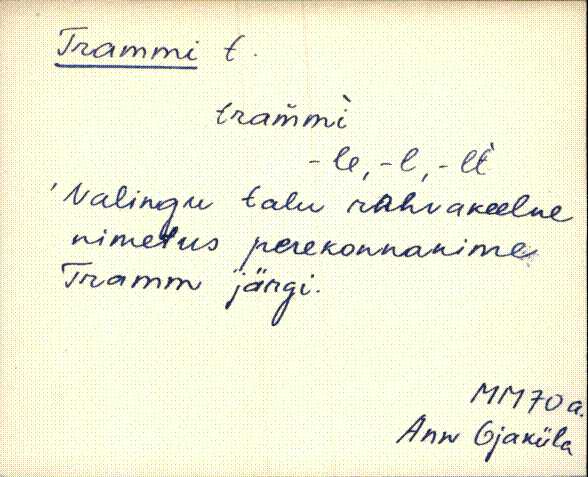 Trammi t.
tram̆mì
-le, -l, -lt̀
'Valingu talu rahvakeelne
nimetus perekonnanime
Tramm järgi.
MM70a.
Ann Ojaküla